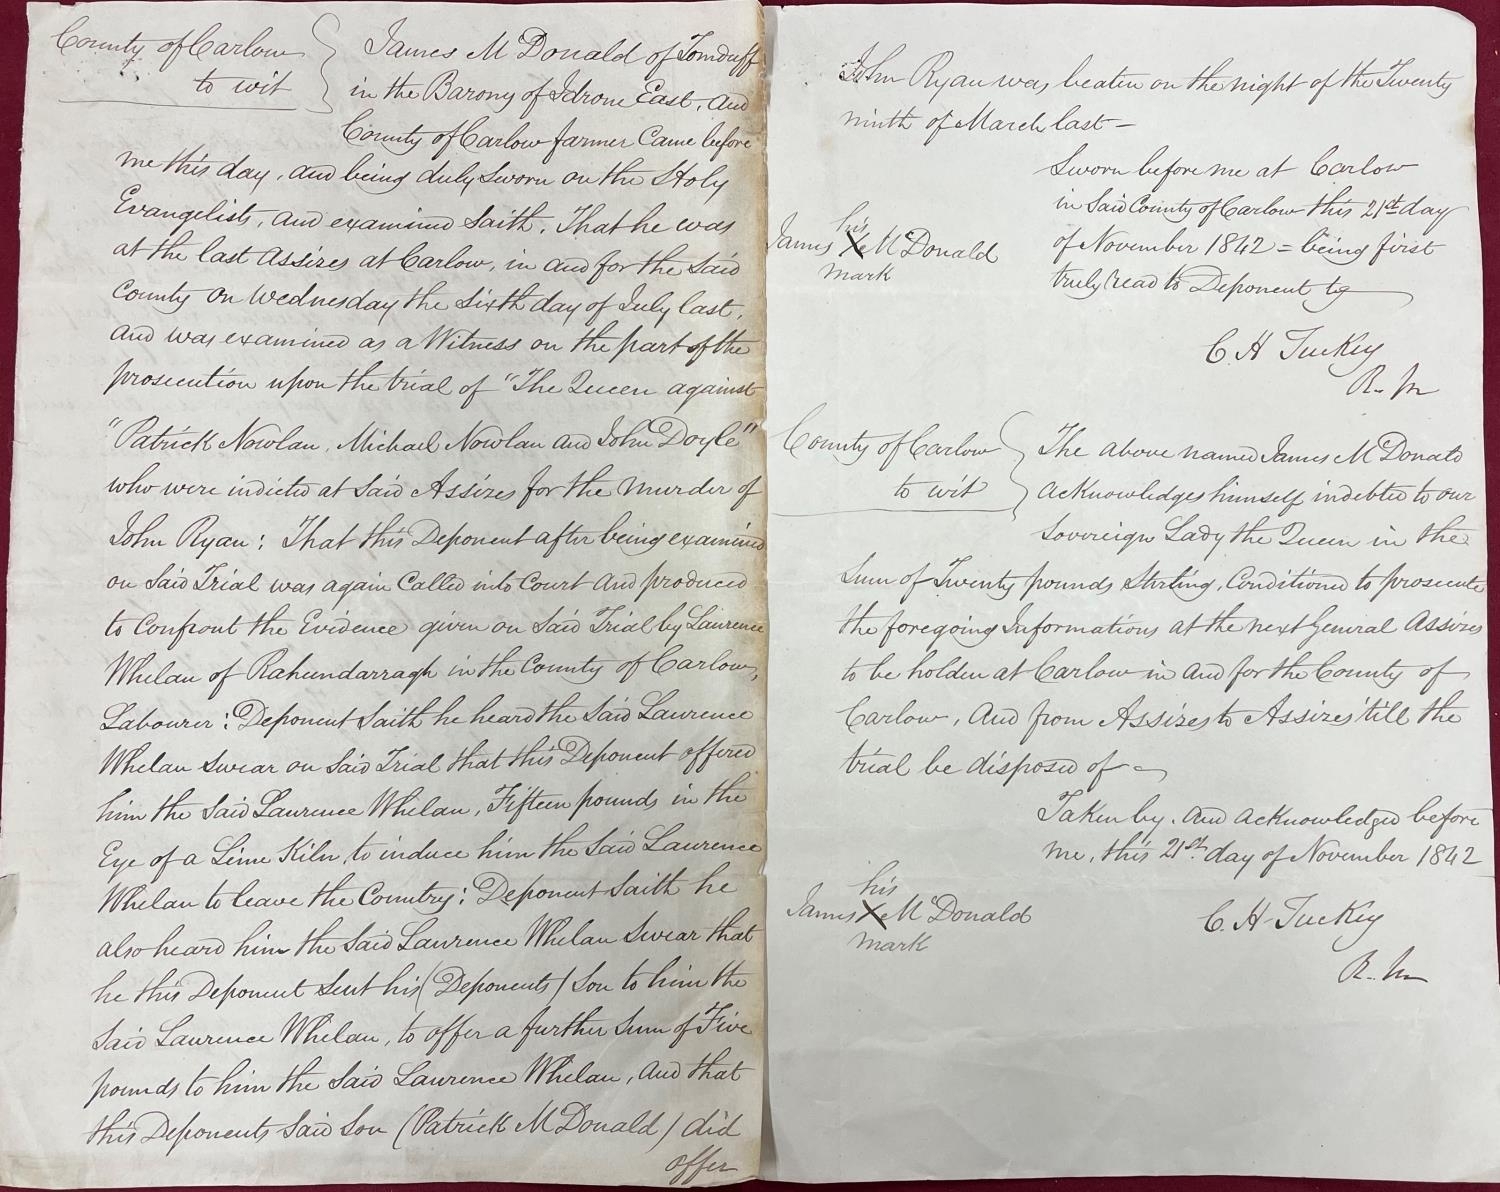 County of Carlow
to wit
James McDonald of Tomduff
in the Barony of Idrone East, and
County of Carlow farmer Came before
me this day, and being duly Sworn on the Holy
Evangelists, and examined Saith, That he was
at the last Assizes at Carlow, in and for the Said
County on Wednesday the Sixth day of July last,
and was examined as a Witness on the part of the
prosecution upon the trial of "The Queen against
"Patrick Nowlan, Michael Nowlan and John Doyle"
who were indicted at Said Assizes for the Murder of
John Ryan: That this Deponent after being examined
on Said Trial was again Called into Court and produced
to Confront the Evidence given on Said Trial by Laurence
Whelan of Raheendarragh in the County of Carlow,
Labourer: Deponent Saith he heard the Said Laurence
Whelan Swear on Said Trial that this Deponent offered
him the Said Laurence Whelan, Fifteen pounds in the
Eye of a Lime Kiln, to induce him the Said Laurence
Whelan to leave the Country: Deponent Saith he
also heard him the Said Laurence Whelan Swear that
he this Deponent Sent his (Deponents) Son to him the
Said Laurence Whelan, to offer a further Sum of Five
pounds to him the Said Laurence Whelan, and that
this Deponents Said Son (Patrick McDonald) did
offer
John Ryan was beaten on the night of the Twenty
ninth of March last —
Sworn before me at Carlow
in Said County of Carlow this 21st day
of November 1842 = being first
truly read to Deponent
his
James X McDonald
mark
C H Tuckey
R. M
County of Carlow
to wit
The above named James McDonald
acknowledges himself indebted to our
Sovereign Lady the Queen in the
Sum of Twenty pounds Sterling, Conditioned to prosecute
the foregoing Informations at the next General Assizes
to be holden at Carlow in and for the County of
Carlow, and from Assizes to Assizes 'till the
trial be disposed of —
Taken by, and acknowledged before
me, this 21st day of November 1842
his
James X McDonald
mark
C. H. Tuckey
R. M